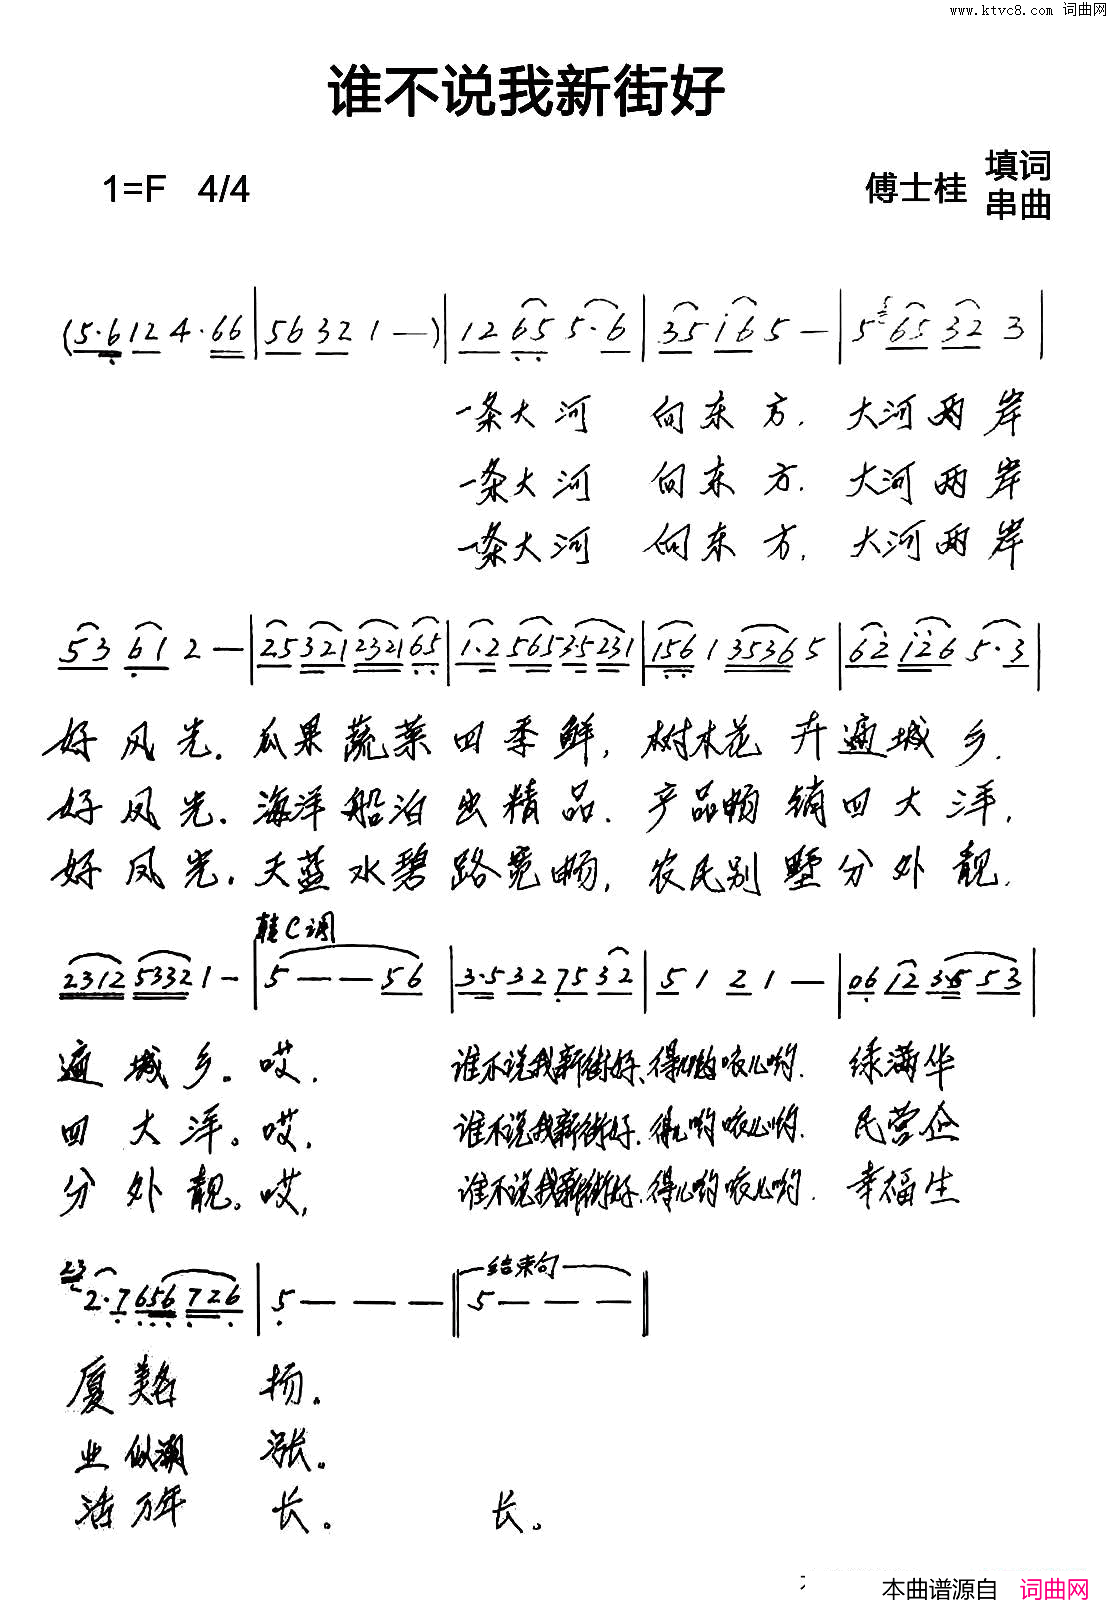 www.ktvc8.com 词曲网
谁不说我新街好
1=F 4/4
傅士桂 填词
串曲
(5·6 12 4·66 | 56 32 1 — ) | 12 65 5·6 | 35 i6 5 — | 5 65 32 3 |
一条大河 向东方. 大河两岸
一条大河 向东方. 大河两岸
一条大河 向东方. 大河两岸
53 61 2 — | 25 321 2321 65 | 1·2 565 3·5 231 | 156 1 3536 5 | 62 i26 5·3 |
好风光. 瓜果蔬菜四季鲜, 树木花卉遍城乡.
好风光. 海洋船泊出精品. 产品畅销四大洋,
好风光. 天蓝水碧路宽畅, 农民别墅分外靓.
转C调
2312 5332 1 - | 5 — — 56 | 3·5 32 75 32 | 5 1 2 1 — | 06 12 3·5 53 |
遍城乡。哎. 谁不说我新街好、得儿哟哝儿哟. 绿满华
四大洋。哎, 谁不说我新街好. 得儿哟哝儿哟. 民营企
分外靓。哎, 谁不说我新街好. 得儿哟哝儿哟. 幸福生
结束句
23 2·7 656 726 | 5 — — — || 5 — — — ||
厦 扬。
业似潮 涨。
活万年 长。 长。
本曲谱源自 词曲网